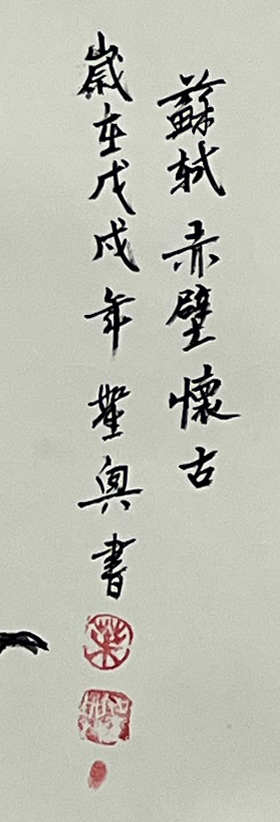 蘇軾赤壁懷古
歲在戊戌年 書